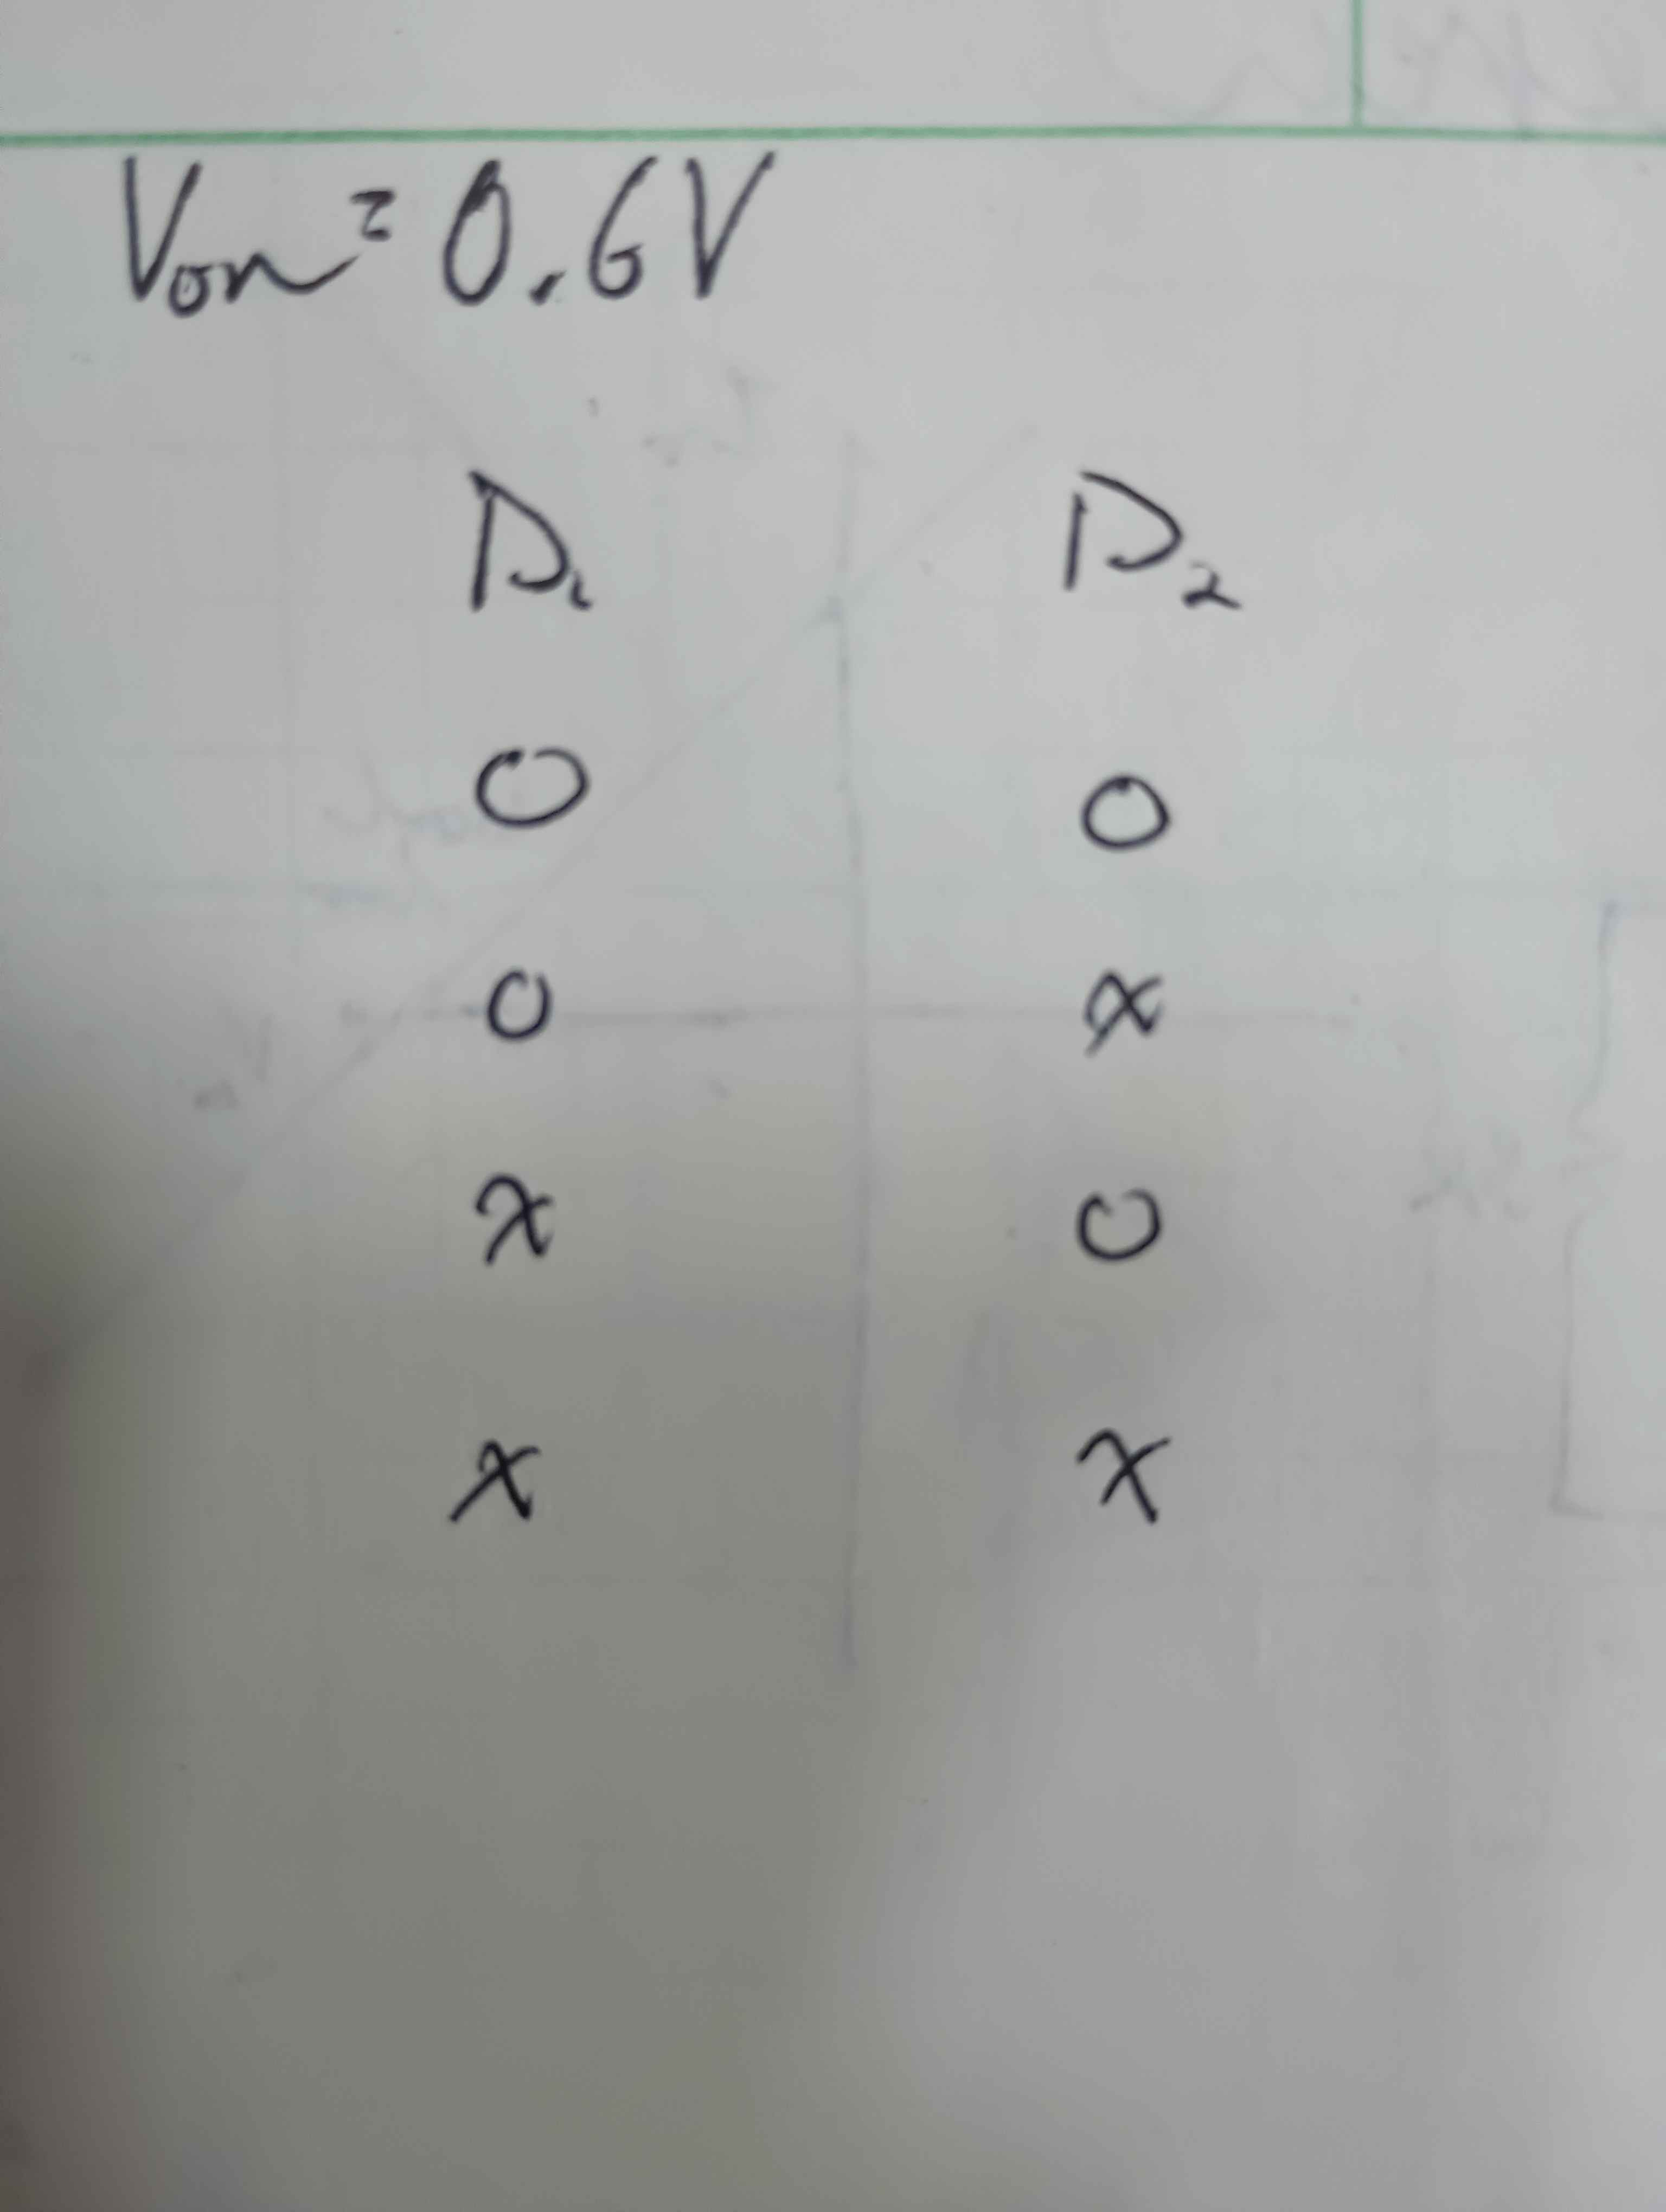 Von = 0.6V
D1 D2
O O
O X
X O
X X